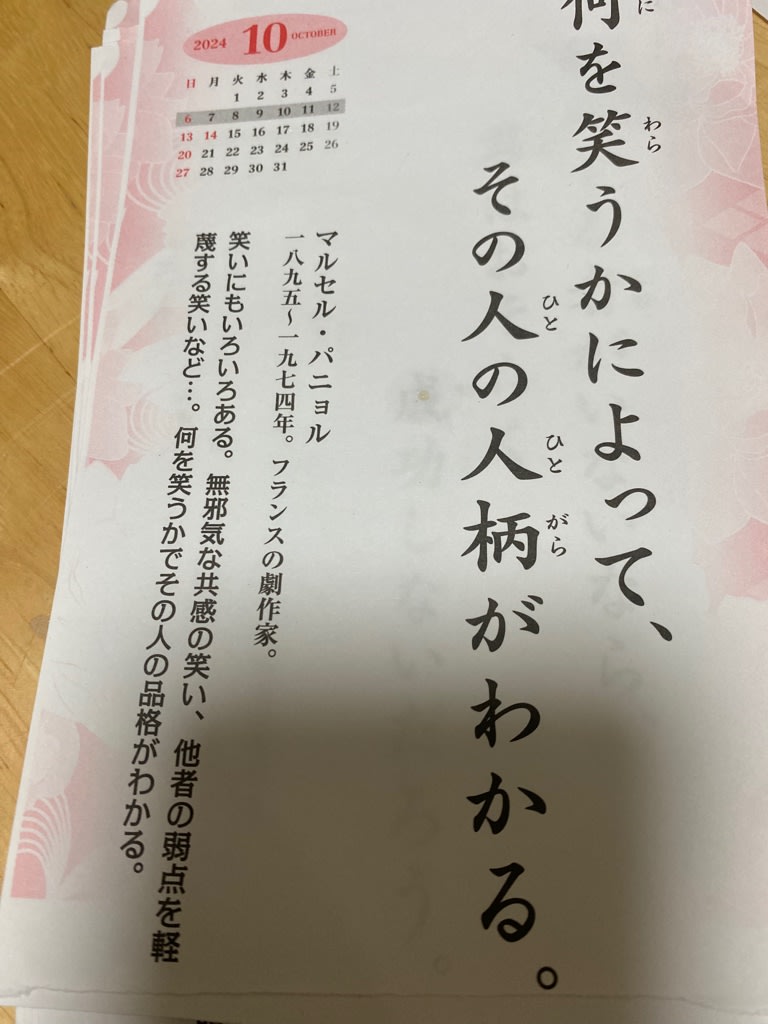 何を笑うかによって、
その人の人柄がわかる。
マルセル・パニョル
一八九五～一九七四年。フランスの劇作家。
笑いにもいろいろある。無邪気な共感の笑い、他者の弱点を軽
蔑する笑いなど…。何を笑うかでその人の品格がわかる。
2024 10 OCTOBER
日 月 火 水 木 金 土
1 2 3 4 5
6 7 8 9 10 11 12
13 14 15 16 17 18 19
20 21 22 23 24 25 26
27 28 29 30 31